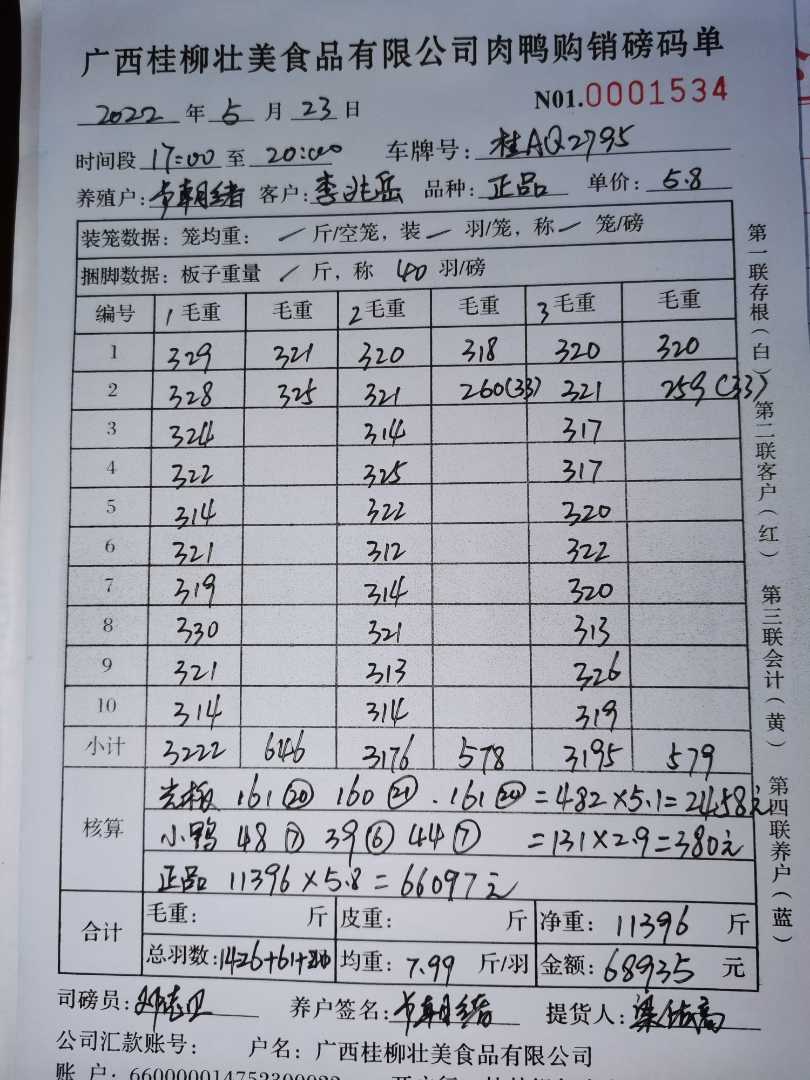 广西桂柳壮美食品有限公司肉鸭购销磅码单
2022 年 5 月 23 日 N01.0001534
时间段 17:00 至 20:00 车牌号: 桂AQ2795
养殖户: 客户: 李兆岳 品种: 正品 单价: 5.8
装笼数据: 笼均重: / 斤/空笼, 装 一 羽/笼, 称 一 笼/磅
捆脚数据: 板子重量 / 斤, 称 40 羽/磅
编号 1 毛重 毛重 2 毛重 毛重 3 毛重 毛重
1 329 321 320 318 320 320
2 328 325 321 260(33) 321 259(33)
3 324 314 317
4 322 325 317
5 314 322 320
6 321 312 322
7 319 314 320
8 330 321 313
9 321 313 326
10 314 314 319
小计 3222 646 3176 578 3195 579
核算
161 ⑳ 160 ㉑ . 161 ⑳ = 482 × 5.1 = 2458元
小鸭 48 ⑦ 39 ⑥ 44 ⑦ = 131 × 2.9 = 380元
正品 11396 × 5.8 = 66097元
合计 毛重: 斤 皮重: 斤 净重: 11396 斤
总羽数: 1426+61+20 均重: 7.99 斤/羽 金额: 68935 元
司磅员: 养户签名: 提货人:
公司汇款账号: 户名: 广西桂柳壮美食品有限公司
账 户: 660000014752300022
第一联存根(白) 第二联客户(红) 第三联会计(黄) 第四联养户(蓝)